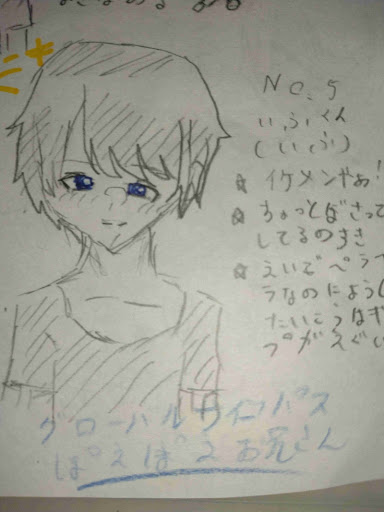 No.5
いふくん
(いふ)
☆ イケメンやぁ!
☆ ちょっとばさって
してるのすき
☆ えいごペラ
ラなのによう
たい
プがえぐい
グローバルサイコパス
ぽえぽえお兄さん